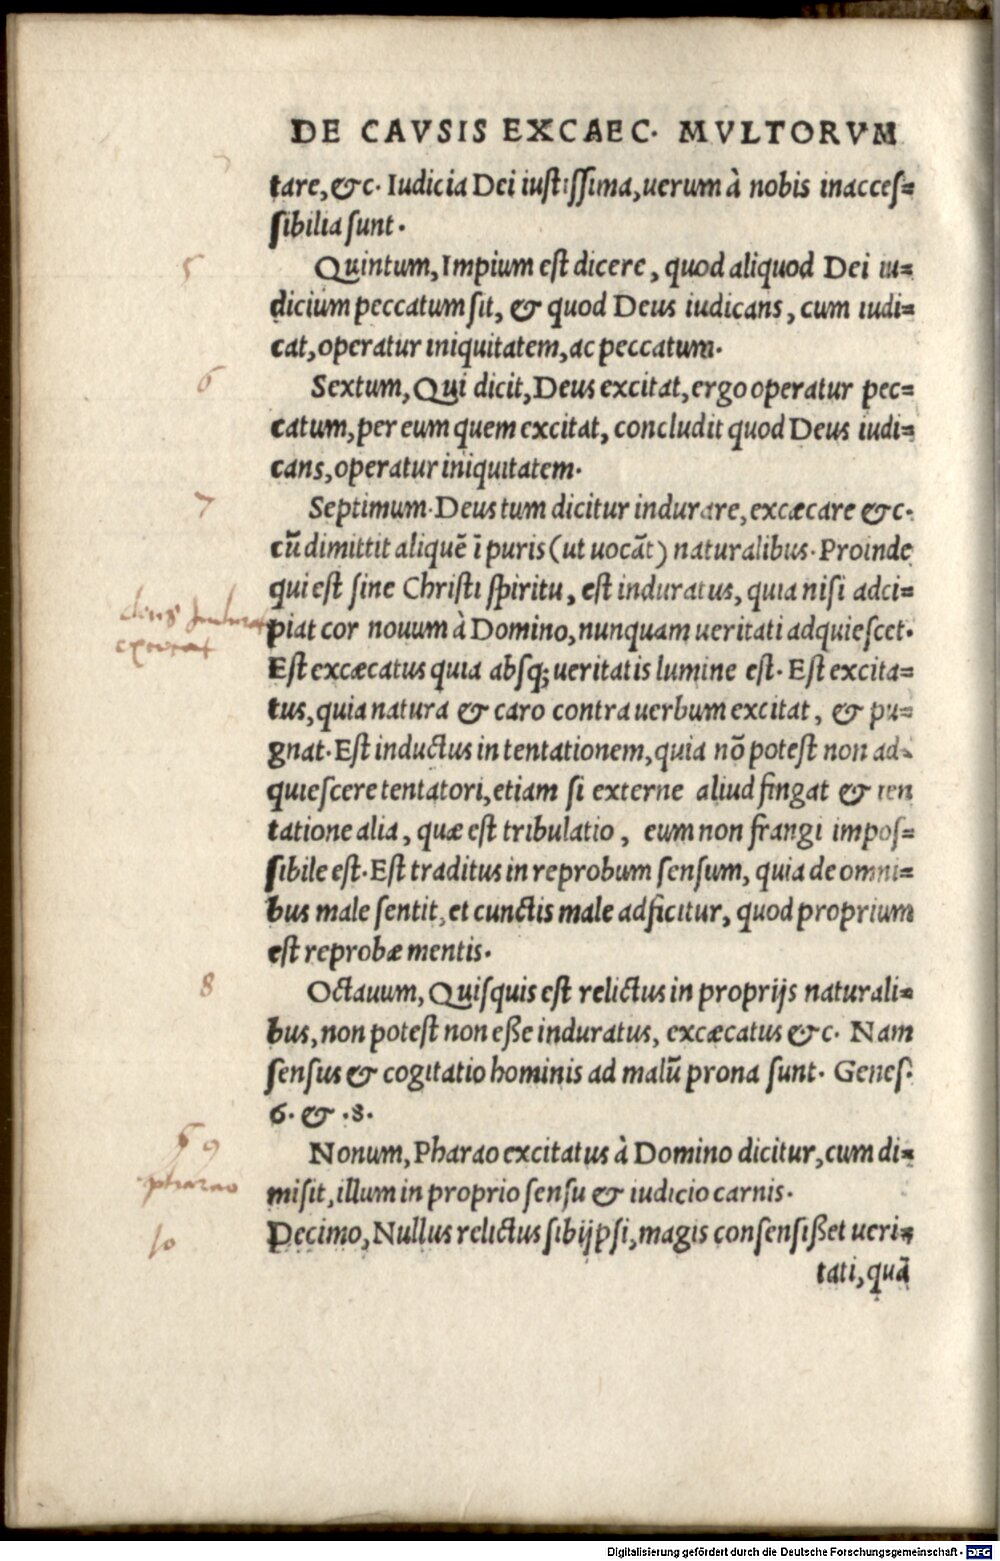 DE CAVSIS EXCAEC. MVLTORVM
tare, &c. Iudicia Dei iustissima, uerum à nobis inacces=
sibilia sunt.
5
Quintum, Impium est dicere, quod aliquod Dei iu=
dicium peccatum sit, & quod Deus iudicans, cum iudi=
cat, operatur iniquitatem, ac peccatum.
6
Sextum, Qui dicit, Deus excitat, ergo operatur pec=
catum, per eum quem excitat, concludit quod Deus iudi=
cans, operatur iniquitatem.
7
Septimum. Deus tum dicitur indurare, excæcare &c.
cū dimittit aliquē ī puris (ut uocāt) naturalibus. Proinde
qui est sine Christi spiritu, est induratus, quia nisi adci=
deus indurat
piat cor nouum à Domino, nunquam ueritati adquiescet.
excecat
Est excæcatus quia absq; ueritatis lumine est. Est excita=
tus, quia natura & caro contra uerbum excitat, & pu=
gnat. Est inductus in tentationem, quia nō potest non ad=
quiescere tentatori, etiam si externe aliud fingat & ten
tatione alia, quæ est tribulatio, eum non frangi impos=
sibile est. Est traditus in reprobum sensum, quia de omni=
bus male sentit, et cunctis male adficitur, quod proprium
est reprobæ mentis.
8
Octauum, Quisquis est relictus in proprijs naturali=
bus, non potest non eße induratus, excæcatus &c. Nam
sensus & cogitatio hominis ad malū prona sunt. Genes.
6. & .8.
9
Nonum, Pharao excitatus à Domino dicitur, cum di=
pharao
misit, illum in proprio sensu & iudicio carnis.
10
Decimo, Nullus relictus sibijpsi, magis consensißet ueri=
tati, quā
Digitalisierung gefördert durch die Deutsche Forschungsgemeinschaft - DFG